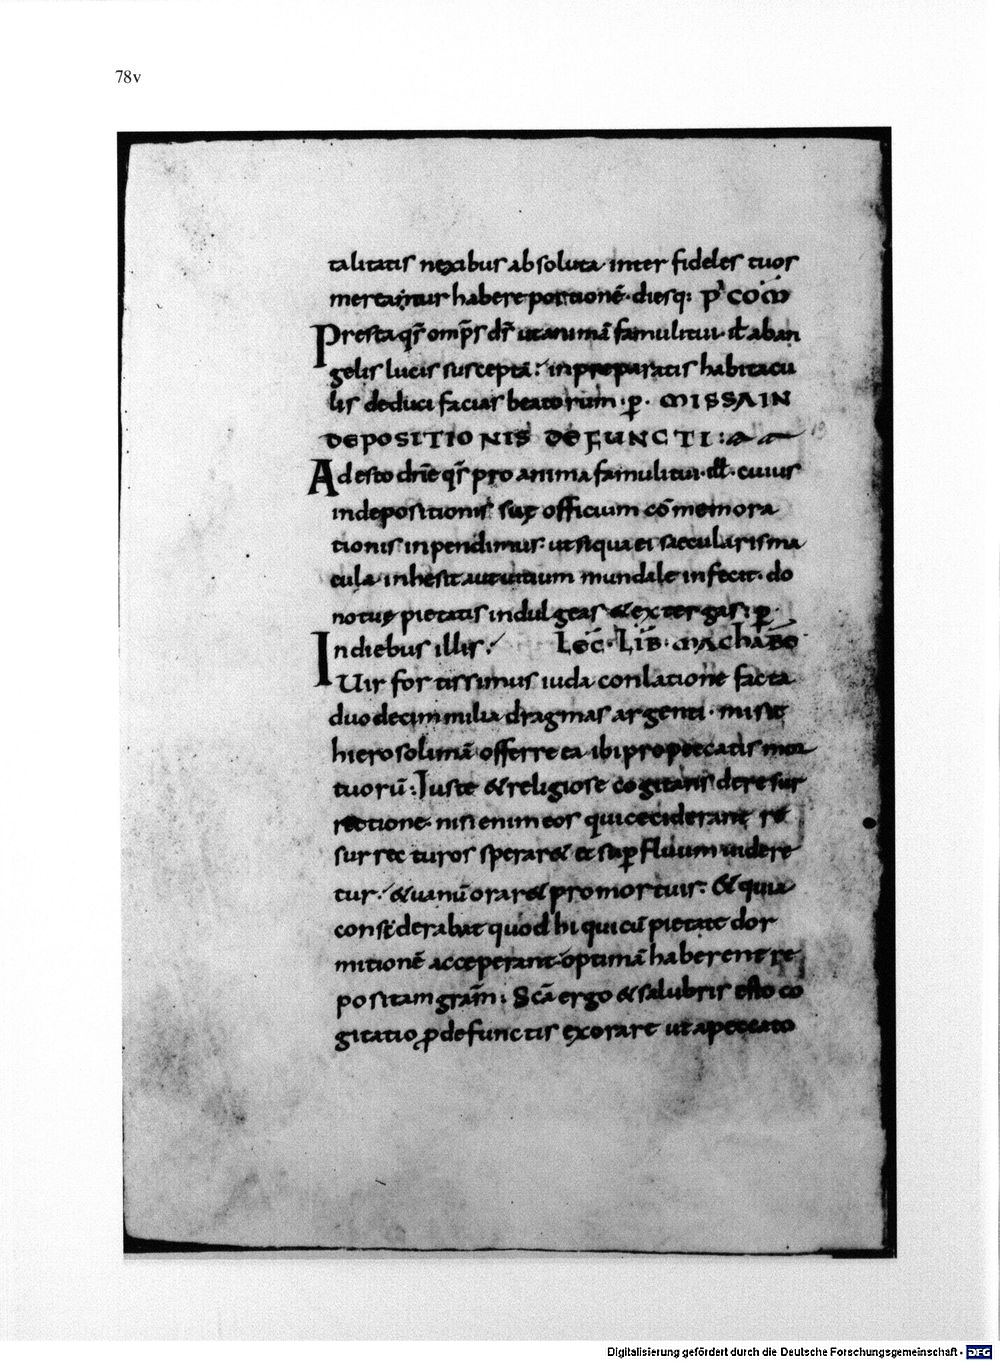 78v
talitatis nexibus absoluta inter fideles tuos
mereatur habere portionē· diesq: pꝰ COM̄
Presta qs̄ omps̄ ds̄ ut animā famuli tui · ill aban
gelis lucis susceptā: in preparatis habitacu
lis deduci facias beatorum · p̱ · MISSA IN
DEPOSITIONIS DEFUNCTI:
Adesto dn̄e qs̄ pro anima famuli tui · ill · cuius
in depositionis sue officium cōmemora
tionis inpendimus · ut siqua ei saecularis ma
cula inhesit aut uitium mundale infecit · do
no tue pietatis indulgeas & extergas: p̱ ·
In diebus illis: LEC̄ · LIB̄ · MACHABEO
Uir fortissimus iuda conlatione facta
duodecim milia dragmas argenti · misit
hierosolimā offerre ea ibi pro peccatis mor
tuorū: Iuste & religiose cogitans de resur
rectione · nisi enim eos qui ceciderant re
surrecturos sperar& et sup̱fluum uidere
tur: & uanū orar& pro mortuis: & quia
considerabat quod hi qui cū pietate dor
mitionē acceperant · optimā haberent re
positam gratm̄: Scā ergo & salubris est co
gitatio p̱ defunctis exorare ut a peccato
Digitalisierung gefördert durch die Deutsche Forschungsgemeinschaft - DFG